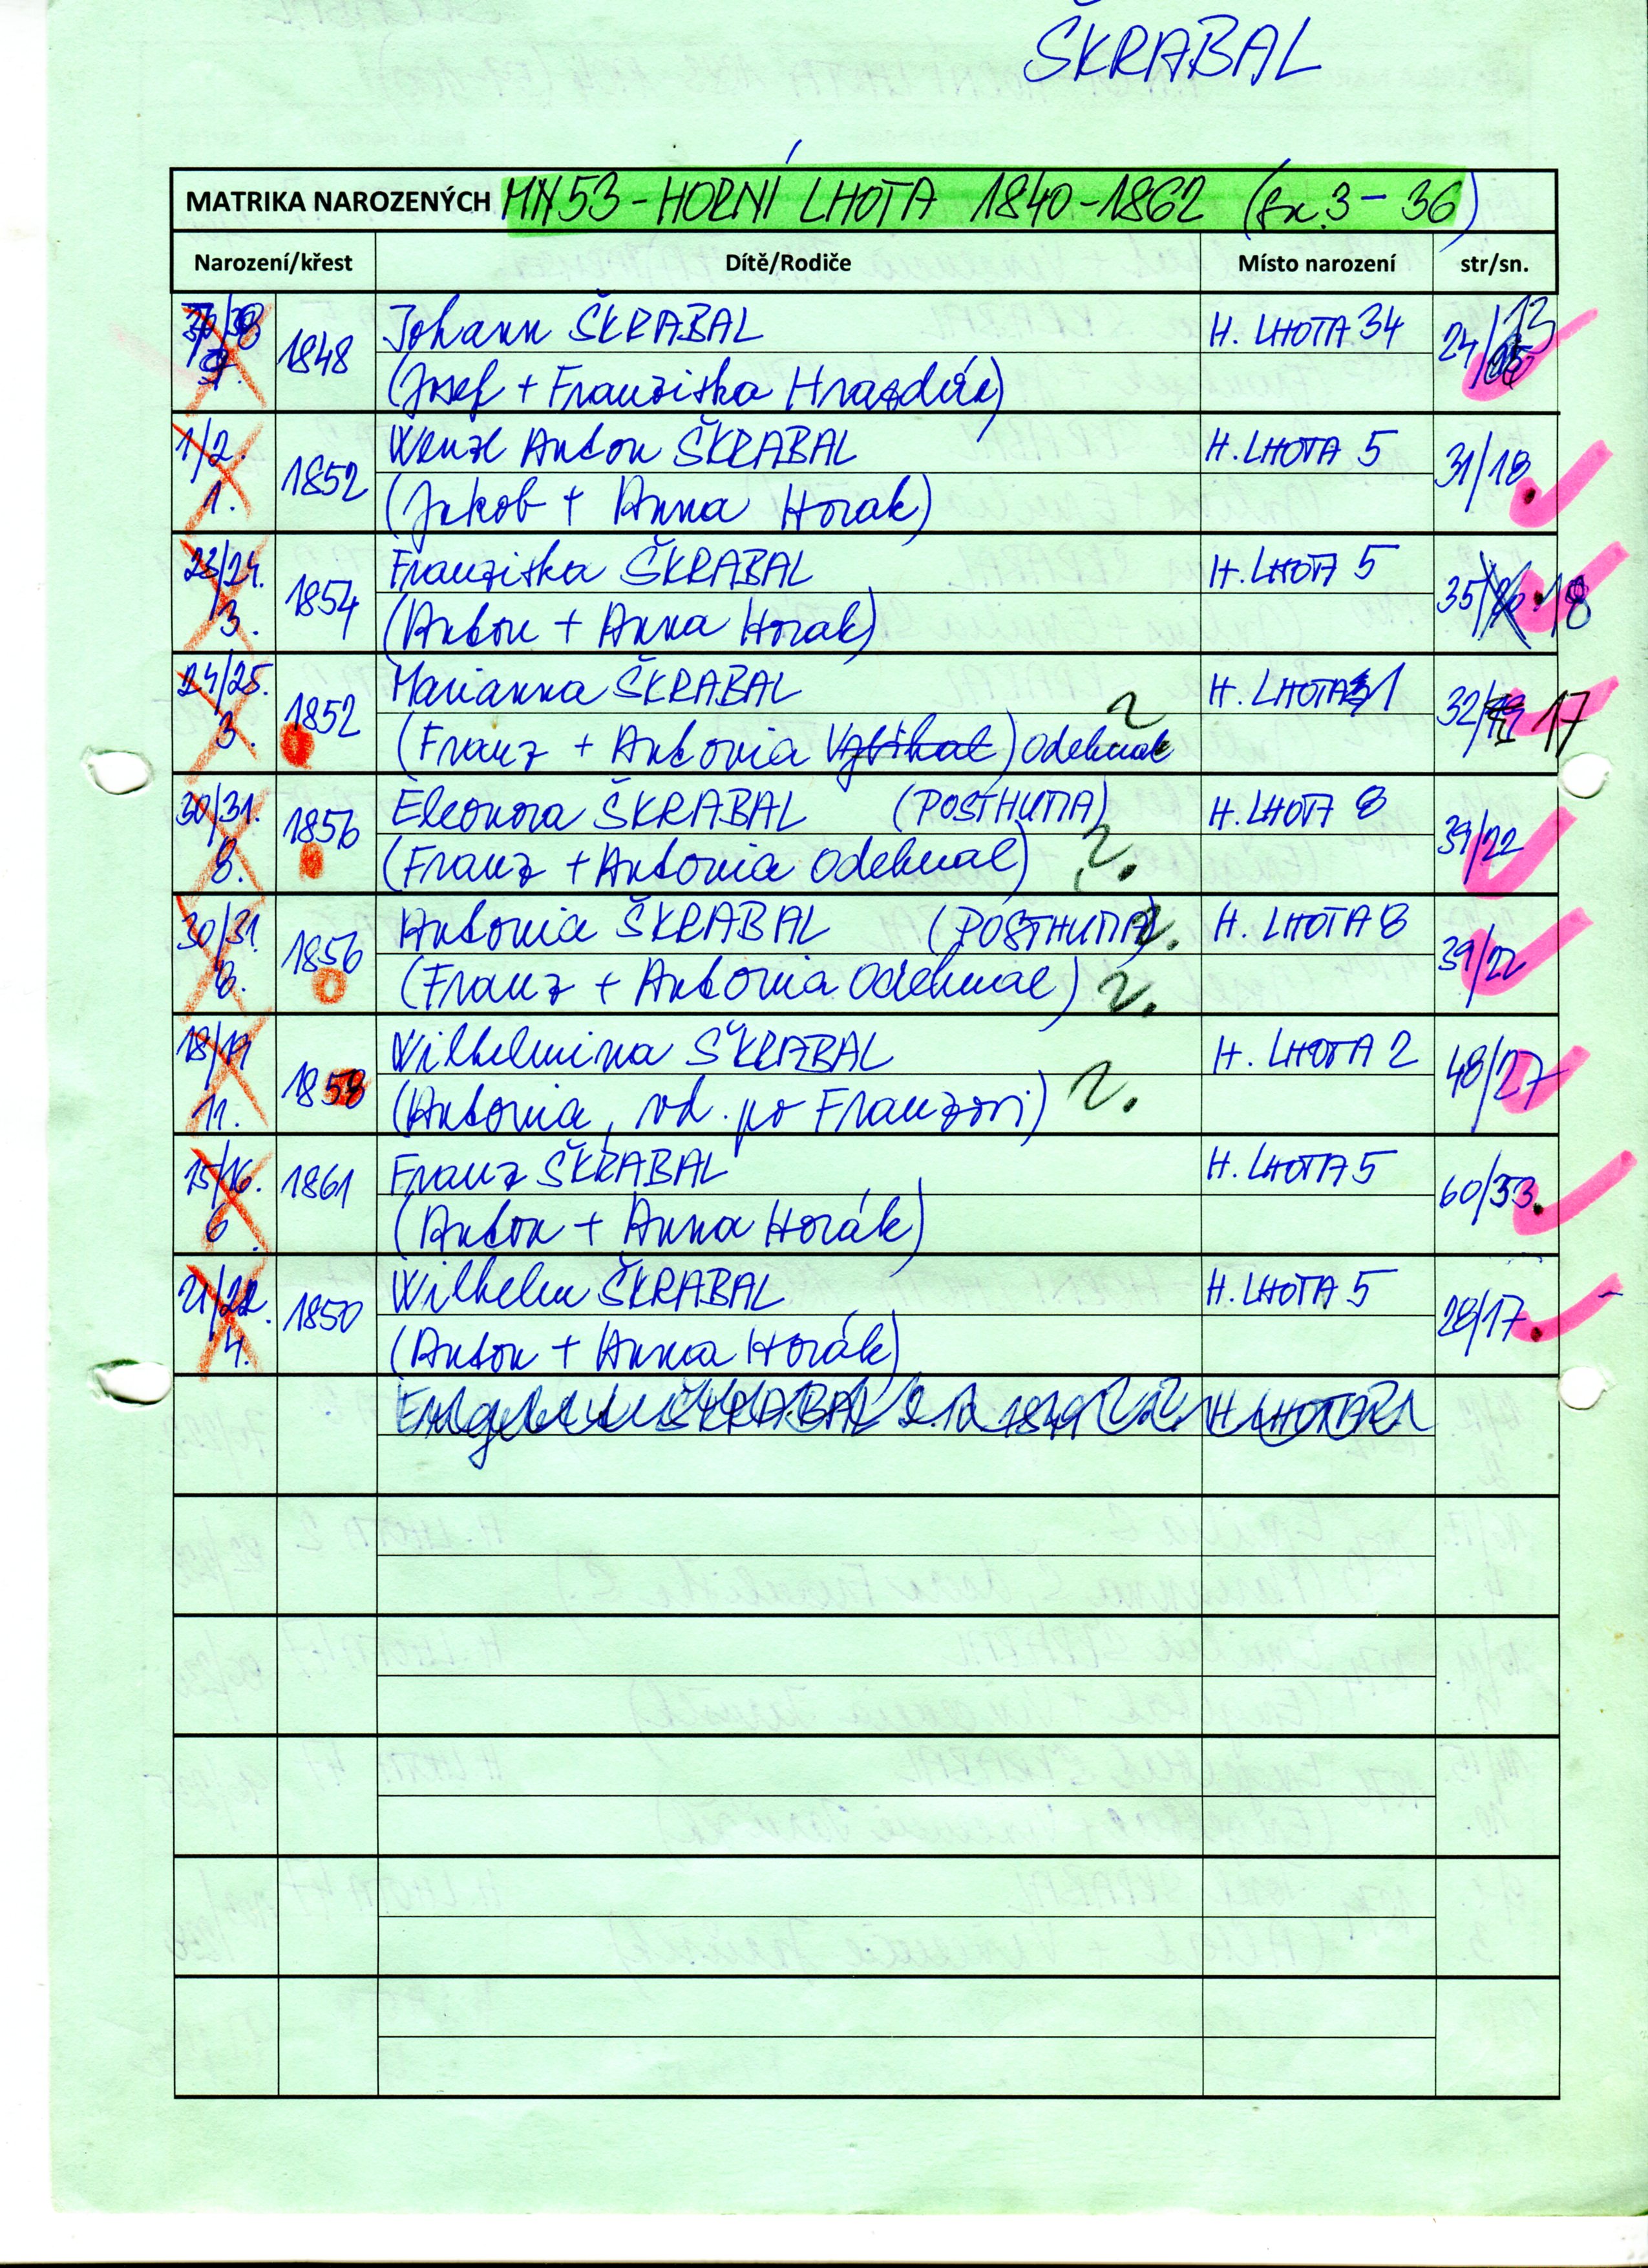 ŠKRABAL
MATRIKA NAROZENÝCH MN53 - HORNÍ LHOTA 1840-1862 (sn. 3 - 36)
Narození/křest Dítě/Rodiče Místo narození str/sn.
1848 Johann ŠKRABAL H. LHOTA 34 24/13
(Josef + Franziska Hrazdír)
1/2. 1. 1852 Wenzl Anton ŠKRABAL H. LHOTA 5 31/18
(Jakob + Anna Horak)
23/24. 3. 1854 Franziska ŠKRABAL H. LHOTA 5 35/18
(Anton + Anna Horak)
24/25. 3. 1852 Marianna ŠKRABAL H. LHOTA 31 32/17
(Franz + Antonia Vybíhal) Odehnal
30/31. 8. 1856 Eleonora ŠKRABAL (POSTHUMA) H. LHOTA 8 39/22
(Franz + Antonia Odehnal)
30/31. 8. 1856 Antonia ŠKRABAL (POSTHUMA) H. LHOTA 8 39/22
(Franz + Antonia Odehnal)
18/19 11. 1858 Wilhelmina ŠKRABAL H. LHOTA 2 48/27
(Antonia, vd. po Franzovi)
15/16. 6. 1861 Franz ŠKRABAL H. LHOTA 5 60/33
(Anton + Anna Horák)
21/22. 4. 1850 Wilhelm ŠKRABAL H. LHOTA 5 28/17
(Anton + Anna Horák)
ŠKRABAL H. LHOTA